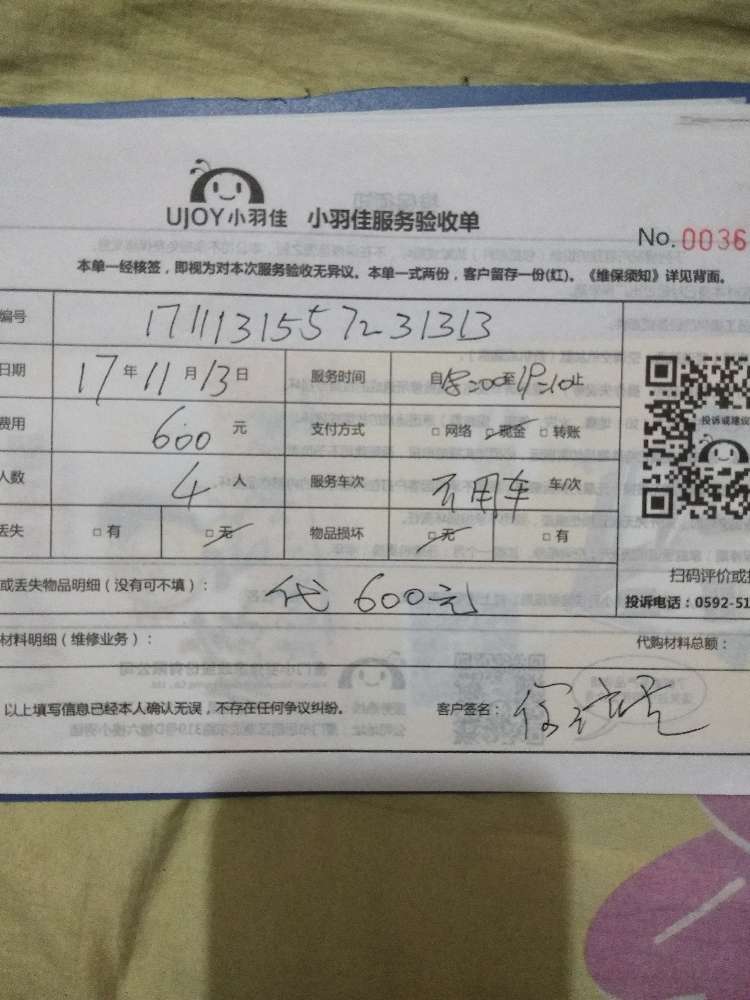 UJOY小羽佳 小羽佳服务验收单
No. 0036
本单一经核签，即视为对本次服务验收无异议。本单一式两份，客户留存一份(红)。《维保须知》详见背面。
编号 1711131557231313
日期 17 年 11 月 13 日 服务时间 自 :00至 :10止
费用 600 元 支付方式 □ 网络 □ 现金 □ 转账
人数 4 人 服务车次 不用车 车/次
丢失 □ 有 □ 无 物品损坏 □ 无 □ 有
投诉或建议
扫码评价或
或丢失物品明细（没有可不填）： 代 600元
投诉电话：0592-51
材料明细（维修业务）： 代购材料总额：
以上填写信息已经本人确认无误，不存在任何争议纠纷。 客户签名：